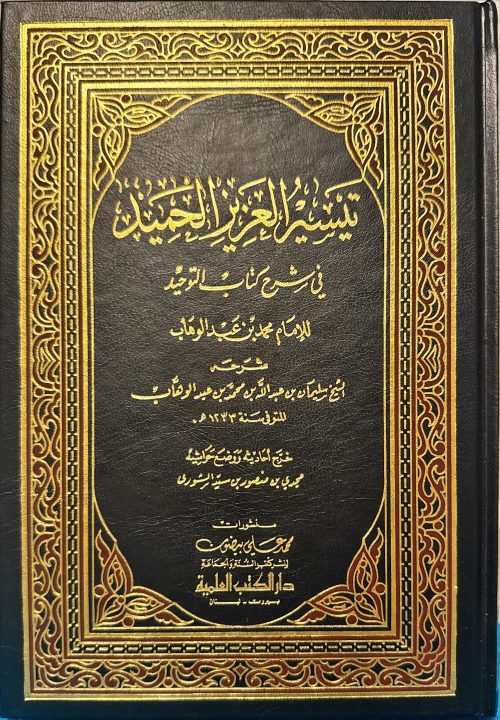 تيسير العزيز الحميد
في شرح كتاب التوحيد
للإمام محمد بن عبد الوهاب
شرحه
الشيخ سليمان بن عبد الله بن محمد بن عبد الوهاب
المتوفى سنة ١٢٣٣ هـ.
خرج أحاديثه ووضع حواشيه
مجدي بن منصور بن سيد الشورى
منشورات
محمد علي بيضون
لنشر كتب السنة والجماعة
دار الكتب العلمية
بيروت - لبنان